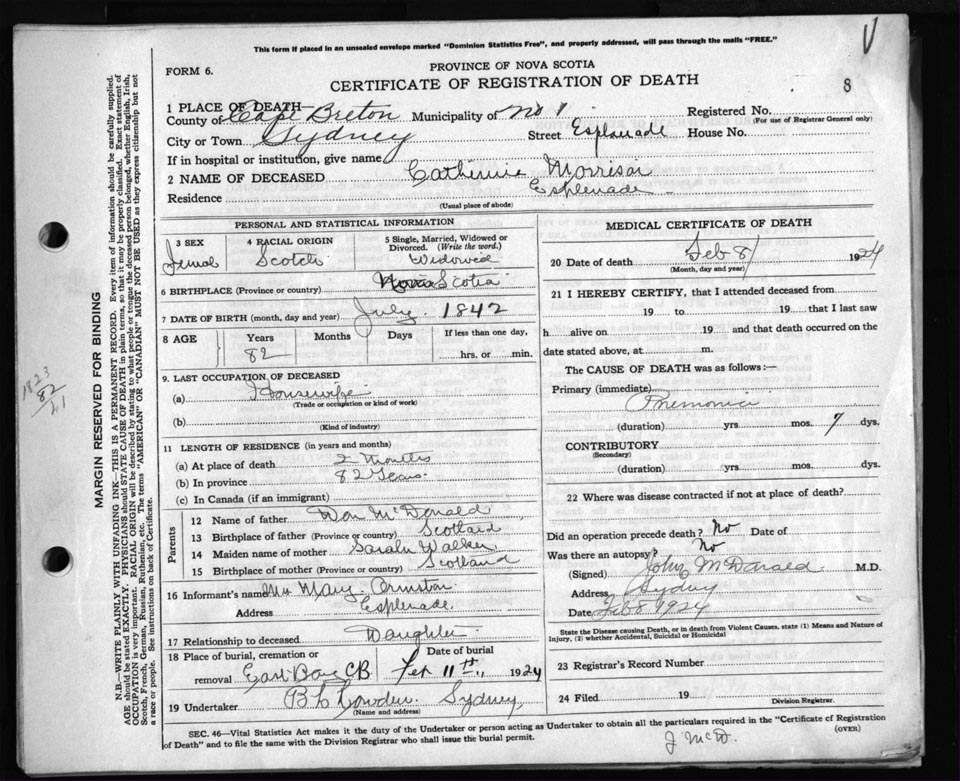 This form if placed in an unsealed envelope marked "Dominion Statistics Free", and properly addressed, will pass through the mails "FREE."
V
PROVINCE OF NOVA SCOTIA
FORM 6.
CERTIFICATE OF REGISTRATION OF DEATH
8
1 PLACE OF DEATH—
County of Cape Breton Municipality of No 1 Registered No.
(For use of Registrar General only)
City or Town Sydney Street Esplanade House No.
If in hospital or institution, give name
2 NAME OF DECEASED Catherine Morrison
Residence Esplenade
(Usual place of abode)
PERSONAL AND STATISTICAL INFORMATION
3 SEX 4 RACIAL ORIGIN 5 Single, Married, Widowed or Divorced. (Write the word.)
Female Scotch Widowed
6 BIRTHPLACE (Province or country) Nova Scotia
7 DATE OF BIRTH (month, day and year) July 1842
8 AGE Years Months Days If less than one day,
82 hrs. or min.
9. LAST OCCUPATION OF DECEASED
(a) Housewife
(Trade or occupation or kind of work)
(b)
(Kind of industry)
11 LENGTH OF RESIDENCE (in years and months)
(a) At place of death 2 Months
(b) In province 82 Years
(c) In Canada (if an immigrant)
Parents
12 Name of father Don McDonald
13 Birthplace of father (Province or country) Scotland
14 Maiden name of mother Sarah Walker
15 Birthplace of mother (Province or country) Scotland
16 Informant's name Mrs Mary Ormiston
Address Esplenade
17 Relationship to deceased Daughter
18 Place of burial, cremation or removal Date of burial
East Bay CB Feb 11th, 1924
19 Undertaker Sydney
(Name and address)
MEDICAL CERTIFICATE OF DEATH
20 Date of death Feb 8/ 1924
(Month, day and year)
21 I HEREBY CERTIFY, that I attended deceased from
19 to 19 that I last saw
h alive on 19 and that death occurred on the
date stated above, at m.
The CAUSE OF DEATH was as follows:—
Primary (immediate)
Pnemonia
(duration) yrs. mos. 7 dys.
CONTRIBUTORY
(Secondary)
(duration) yrs. mos. dys.
22 Where was disease contracted if not at place of death?
Did an operation precede death? No Date of
Was there an autopsy? No
(Signed) John McDonald M.D.
Address Sydney
Date Feb 8 1924
State the Disease causing Death, or in death from Violent Causes, state (1) Means and Nature of
Injury, (2) whether Accidental, Suicidal or Homicidal
23 Registrar's Record Number
24 Filed 19
Division Registrar.
SEC. 46—Vital Statistics Act makes it the duty of the Undertaker or person acting as Undertaker to obtain all the particulars required in the "Certificate of Registration
of Death" and to file the same with the Division Registrar who shall issue the burial permit.
(OVER)
J McD.
MARGIN RESERVED FOR BINDING
N.B.—WRITE PLAINLY WITH UNFADING INK—THIS IS A PERMANENT RECORD. Every item of information should be carefully supplied.
AGE should be stated EXACTLY. PHYSICIANS should STATE CAUSE OF DEATH in plain terms, so that it may be properly classified. Exact statement of
OCCUPATION is very important. RACIAL ORIGIN will be described by stating to what people or tongue the deceased person belonged, whether English, Irish,
Scotch, French, German, Russian, Ruthenian, etc. The terms "AMERICAN" OR "CANADIAN" MUST NOT BE USED as they express citizenship but not
a race or people. See instructions on back of Certificate.
1823
82
41